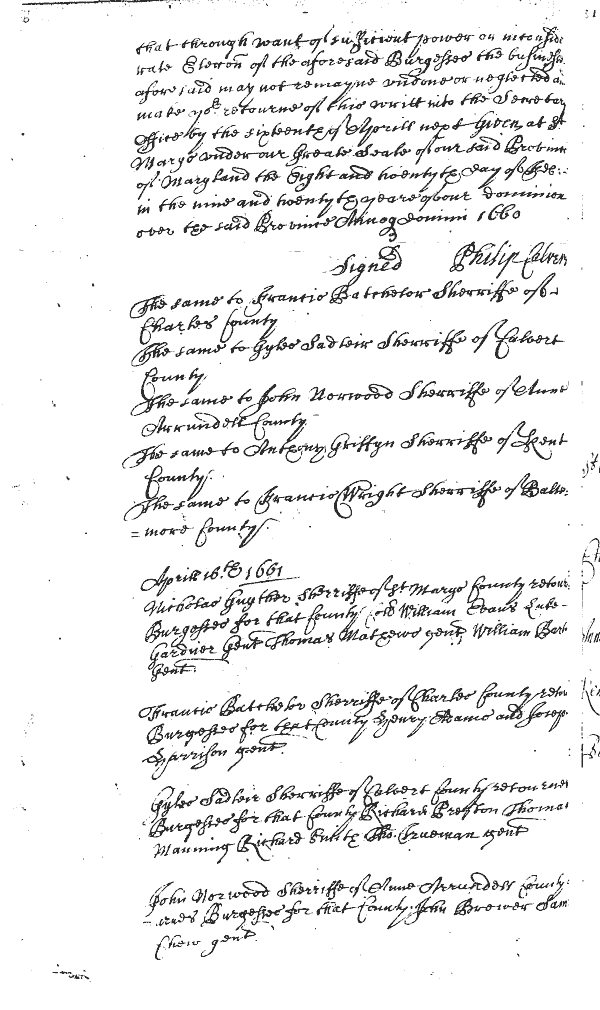 that through want of sufficient power or inconside
rate Elecon of the aforesaid Burgesses the businesse
aforesaid may not remayne undone or neglected an
make yor retourne of this writt into the Secretar
Office by the sixteenth of Aprill next Given at St
Maryes under our Greate Seale of our said Provin
of Maryland the Eight and twentyth day of
in the nine and twentyth yeare of our dominion
over the said Province Annoq domini 1660
Signed Philip Calver
The same to Francis Batchelor Sherriffe of
Charles County
The same to Gyles Sadleir Sherriffe of Calvert
County
The same to John Norwood Sherriffe of Anne
Arrundell County
The same to Anthony Griffyn Sherriffe of Kent
County
The same to Francis Wright Sherriffe of Balte=
=more County
Aprill 16th 1661
Nicholas Gwyther Sherriffe of St Maryes County retour
Burgesses for that County William Evans Luke
Gardner Gent Thomas Mathews gent William Bart
Gent.
Francis Batchelor Sherriffe of Charles County retor
Burgesses for that County Henry Adams and Josep
Harrison gent
Gyles Sadleir Sherriffe of Calvert County retournes
Burgesses for that County Richard Preston Thomas
Manning Richard Smith Tho: Trueman gent
John Norwood Sherriffe of Anne Arrundell County
Burgesses for that County John Brewer Sam
Chew gent